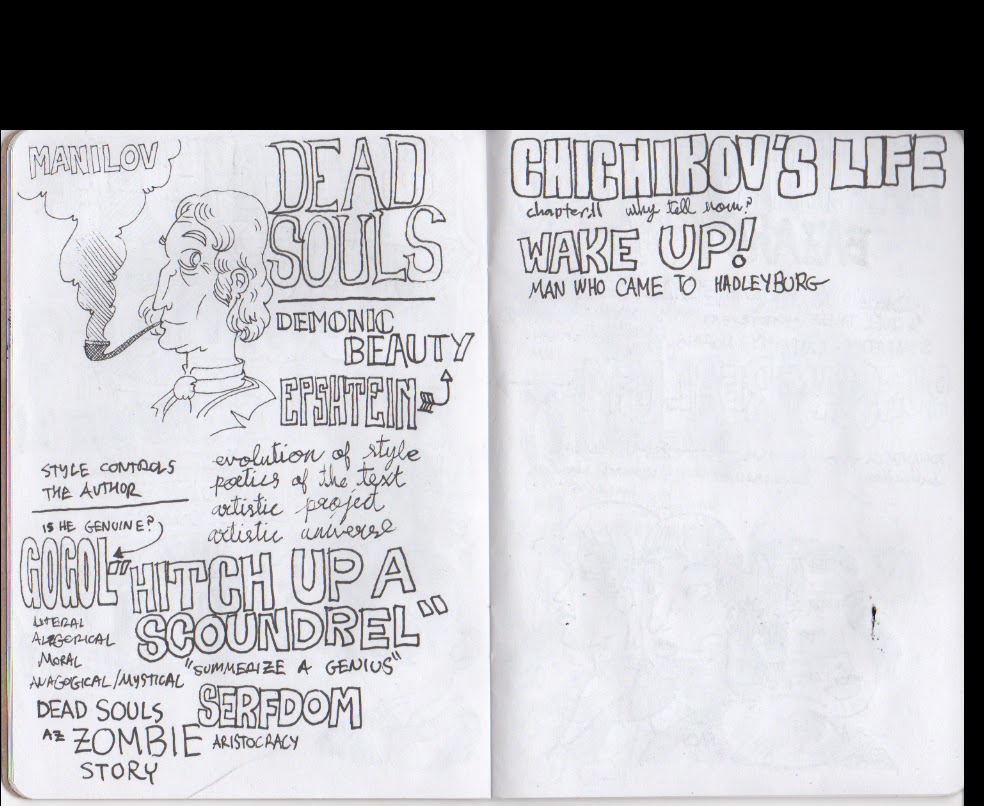 MANILOV
DEAD
SOULS
DEMONIC
BEAUTY
EPSHTEIN
evolution of style
poetics of the text
artistic project
artistic universe
STYLE CONTROLS
THE AUTHOR
IS HE GENUINE?
GOGOL
"HITCH UP A
SCOUNDREL"
"SUMMERIZE A GENIUS"
LITERAL
ALEGORICAL
MORAL
ANAGOGICAL/MYSTICAL
SERFDOM
ARISTOCRACY
DEAD SOULS
AZ ZOMBIE
STORY
CHICHIKOV'S LIFE
chapter 11 why tell now?
WAKE UP!
MAN WHO CAME TO HADLEYBURG